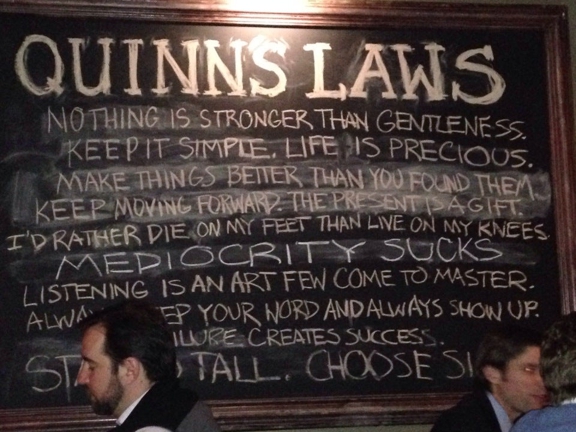 QUINNS LAWS
NOTHING IS STRONGER THAN GENTLENESS.
KEEP IT SIMPLE. LIFE IS PRECIOUS.
MAKE THINGS BETTER THAN YOU FOUND THEM
KEEP MOVING FORWARD. THE PRESENT IS A GIFT.
I'D RATHER DIE ON MY FEET THAN LIVE ON MY KNEES.
MEDIOCRITY SUCKS
LISTENING IS AN ART FEW COME TO MASTER.
YOUR WORD AND ALWAYS SHOW UP.
CREATES SUCCESS.
TALL. CHOOSE